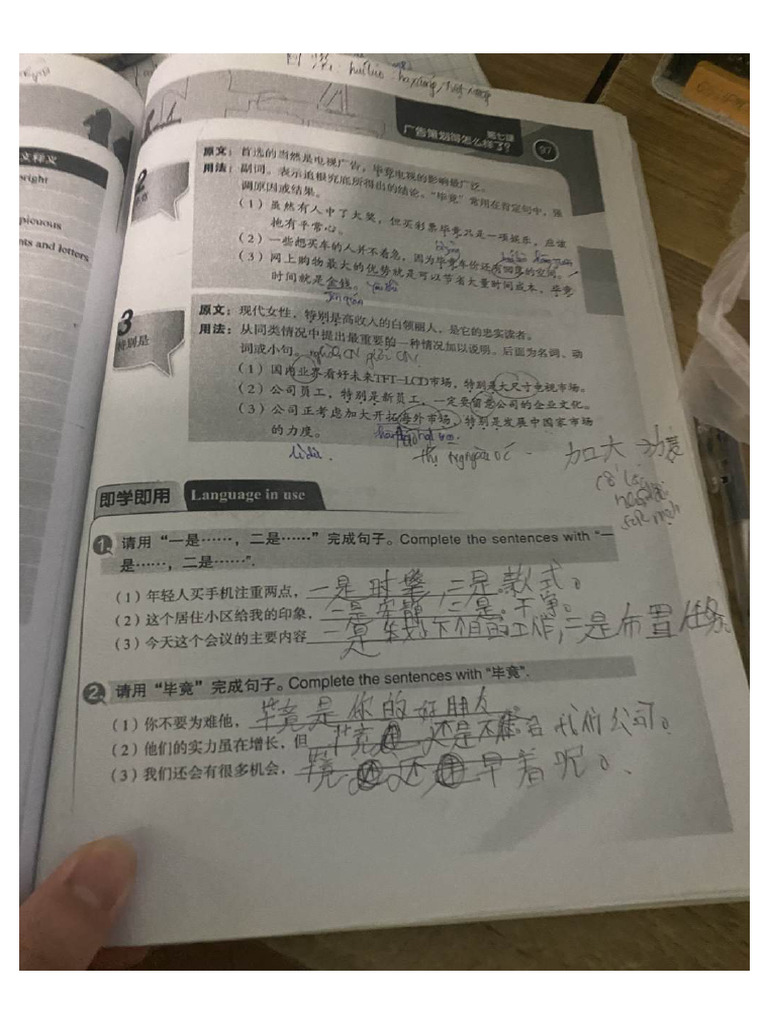 huìlǜ
第七课
广告策划得怎么样了？
97
文释义
right
picuous
nts and letters
2
原文：首选的当然是电视广告，毕竟电视的影响最广泛。
用法：副词。表示追根究底所得出的结论。“毕竟”常用在肯定句中，强
调原因或结果。
（1）虽然有人中了大奖，但买彩票毕竟只是一项娱乐，应该
抱有平常心。
（2）一些想买车的人并不着急，因为毕竟车价还有回落的空间。
（3）网上购物最大的优势就是可以节省大量时间成本，毕竟
时间就是金钱。
3
特别是
原文：现代女性，特别是高收入的白领丽人，是它的忠实读者。
用法：从同类情况中提出最重要的一种情况加以说明。后面为名词、动
词或小句。
（1）国内业界看好未来TFT-LCD市场，特别是大尺寸电视市场。
（2）公司员工，特别是新员工，一定要留意公司的企业文化。
（3）公司正考虑加大开拓海外市场，特别是发展中国家市场
的力度。
lìdù
thị ngoài
加大 力度
即学即用 Language in use
1 请用“一是……，二是……”完成句子。Complete the sentences with “一
是……，二是……”.
（1）年轻人买手机注重两点，一是时髦，二是款式。
（2）这个居住小区给我的印象，一是安静，二是干净。
（3）今天这个会议的主要内容 一是策划下个月的工作，二是布置任务
2 请用“毕竟”完成句子。Complete the sentences with “毕竟”.
（1）你不要为难他，毕竟是你的好朋友
（2）他们的实力虽在增长，但 毕竟 还是不能 我们公司。
（3）我们还会有很多机会，毕竟 还 早着呢。